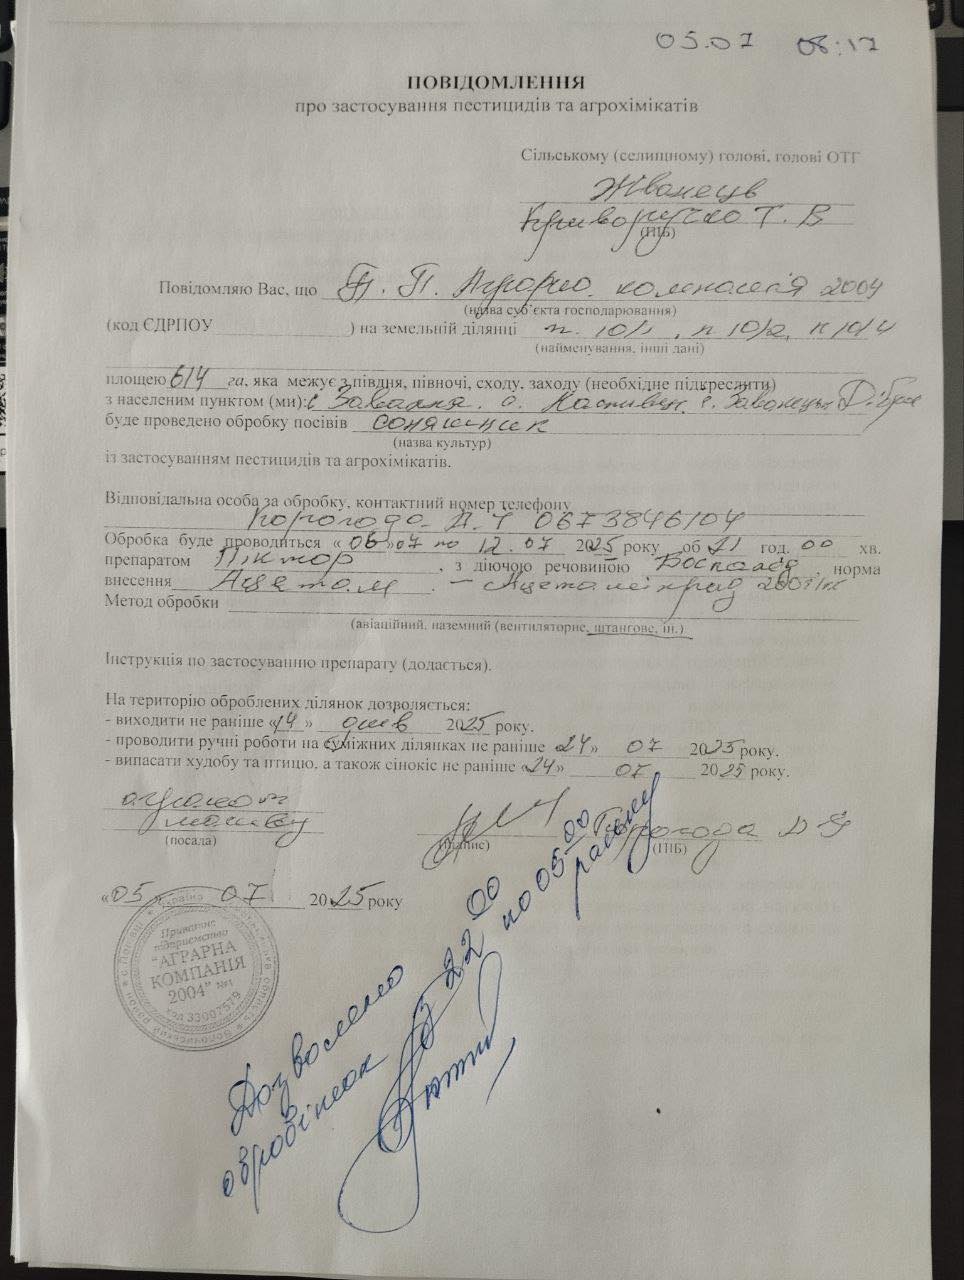 05.07 08:17
ПОВІДОМЛЕННЯ
про застосування пестицидів та агрохімікатів
Сільському (селищному) голові, голові ОТГ
Жванець
Криворучко Т. В
(ПІБ)
Повідомляю Вас, що П.П. Аграрно компанія 2004
(назва суб'єкта господарювання)
(код ЄДРПОУ ) на земельній ділянці п. 10/1, п 10/2, п 10/4
(найменування, інші дані)
площею 614 га, яка межує з півдня, півночі, сходу, заходу (необхідне підкреслити)
з населеним пунктом (ми): с Завалля. с. с. Жванець Діброва
буде проведено обробку посівів соняшник
(назва культур)
із застосуванням пестицидів та агрохімікатів.
Відповідальна особа за обробку, контактний номер телефону
0673846104
Обробка буде проводиться «06»07 по 12.07 2025 року об 21 год. 00 хв.
препаратом Піктор , з діючою речовиною Боскалід , норма
внесення Ацетам - Ацетаміприд 200г/кг
Метод обробки
(авіаційний, наземний (вентиляторне, штангове, ін.)
Інструкція по застосуванню препарату (додається).
На територію оброблених ділянок дозволяється:
- виходити не раніше «14» днів 2025 року.
- проводити ручні роботи на суміжних ділянках не раніше «24» 07 2025 року.
- випасати худобу та птицю, а також сінокіс не раніше «24» 07 2025 року.
агроном
(посада) (підпис) (ПІБ)
«05» 07 2025 року
Приватне
підприємство
"АГРАРНА
КОМПАНІЯ
2004" №1
код 33007579
Дозволено
обробіток з 22 00 по 05 00 ранку